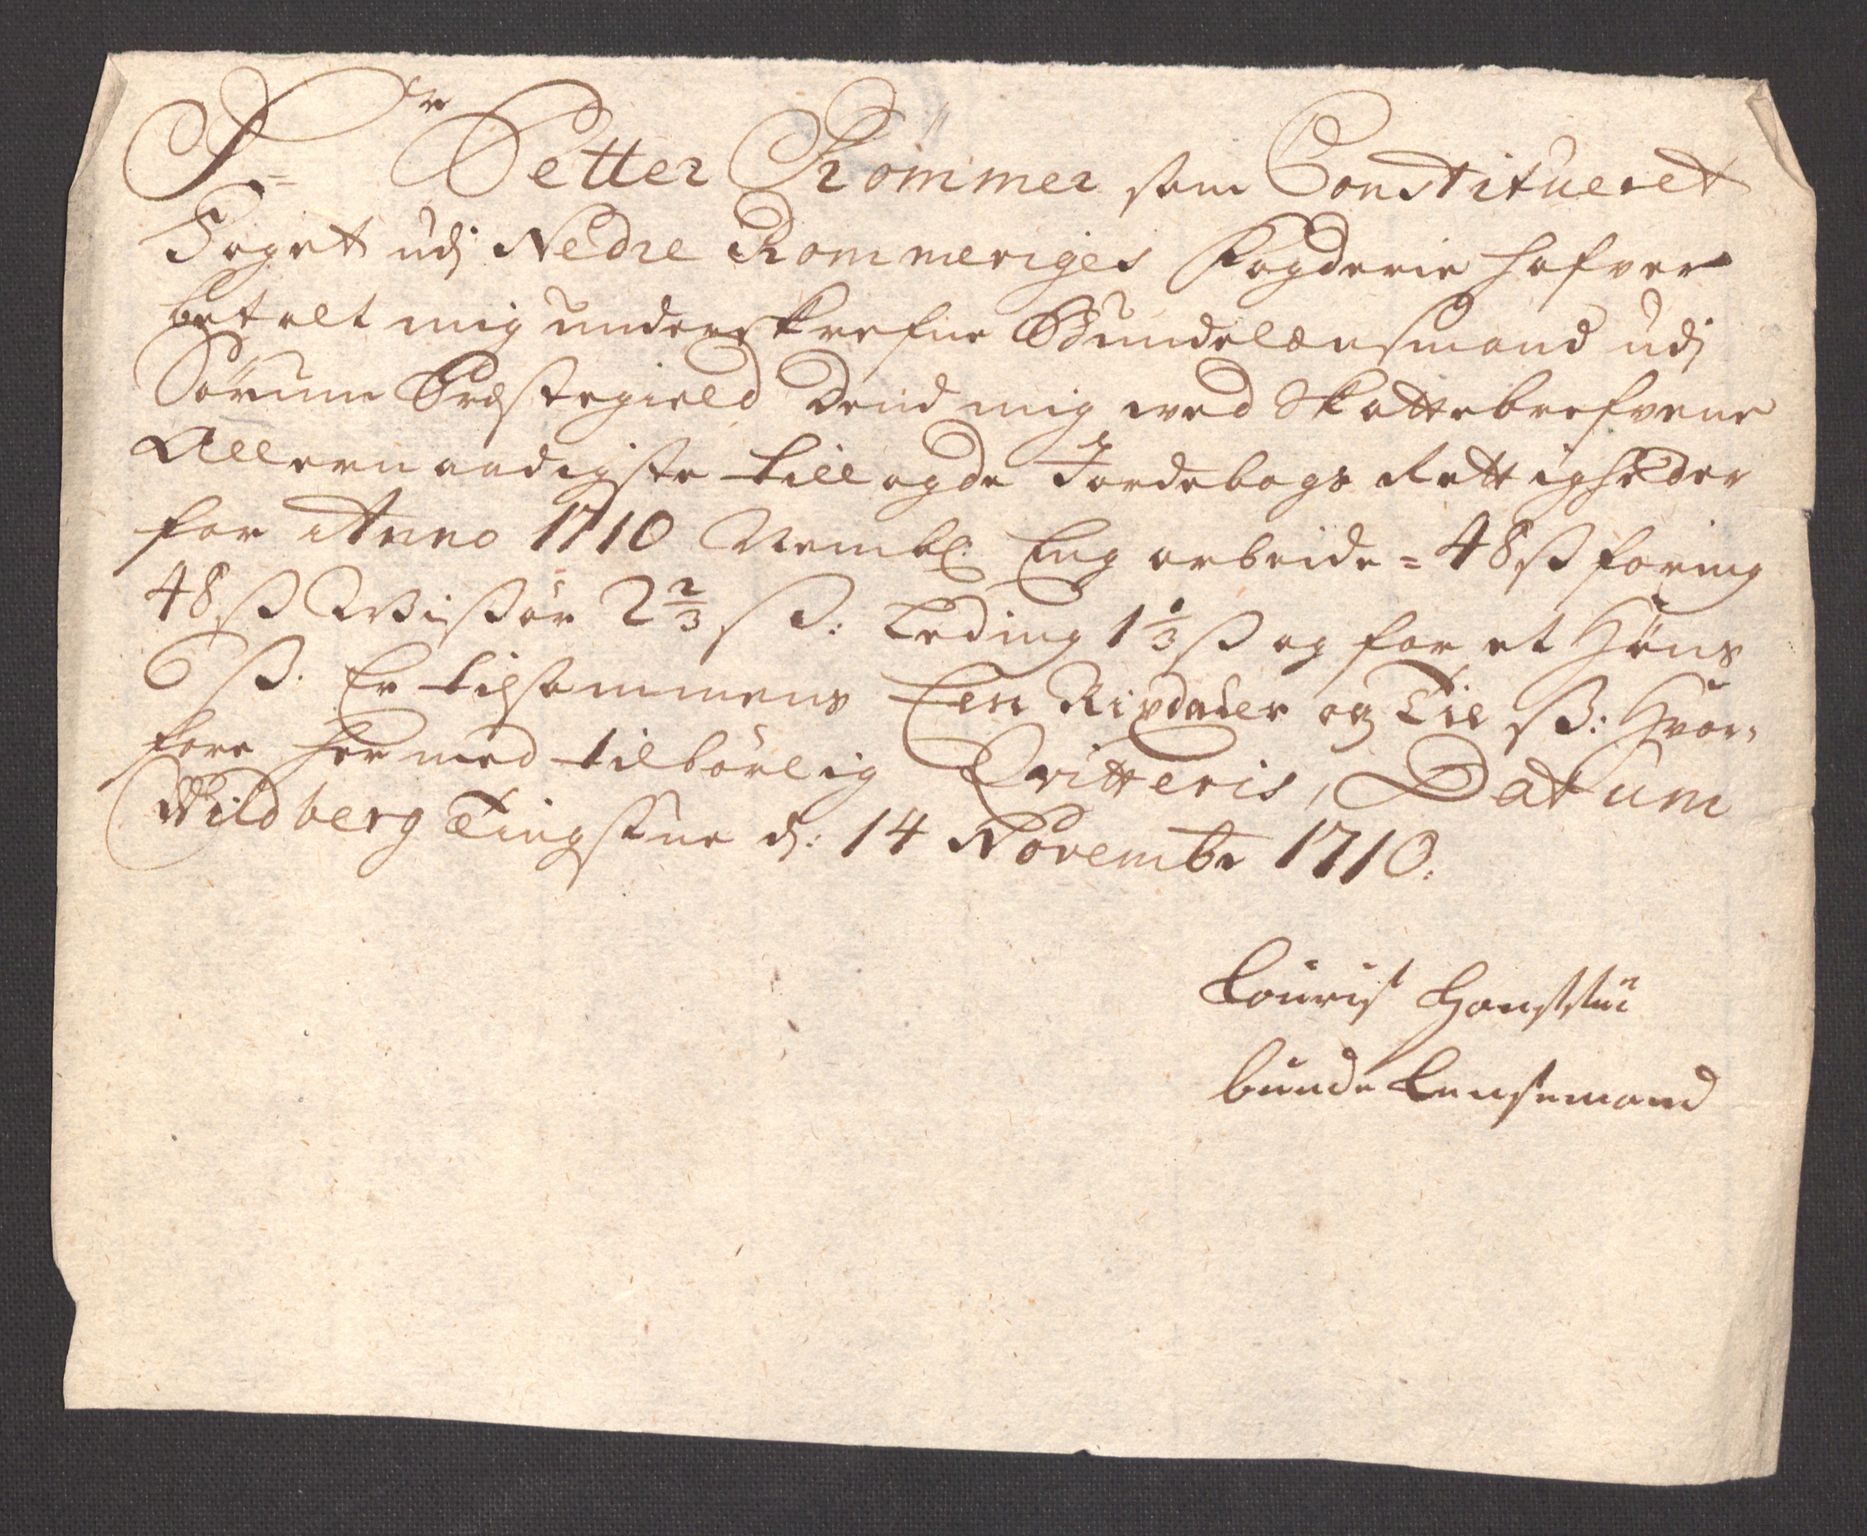 Sr. Petter Römmer som Constitueret
Foget udj Nedre Rommeriges Fogderie hafver
betalt mig underskrefne Bundelænsmand udj
Sörum Præstegield Dend mig wed Skattebrefvene
Allernaadigste tillagde Jordebogs Rettigheder
for Anno 1710 Nembl. Eng arbeide = 48 ß foring
48 ß Wißör 2 2/3 ß: Leding 1 1/3 ß og for et Höns
6 ß. Er tilsammens Een Rixdaler og Tie ß: Hvor,
fore hermed tilbörlig Qvitteris, Datum
Wildberg Tingstue d: 14 Novembr 1710.
Louris
bunde Lensemand